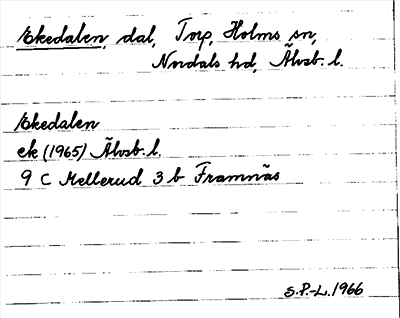 Ekedalen, dal, Torp, Holms sn,
Nordals hd, Älvsb. l.
Ekedalen
ek (1965) Älvsb. l.
9 C Mellerud 3 b Framnäs
S.P.-L. 1966